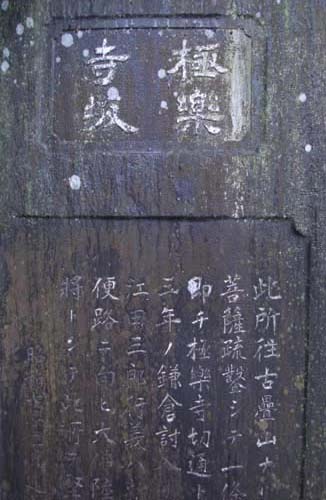 極樂
寺坂
此所往古疊山ナ
菩薩疏鑿シテ一條
即チ極樂寺切通
三年ノ鎌倉討入
江田三郎行義ハ
便路ニ向ヒ大館陸
將トシテ此所